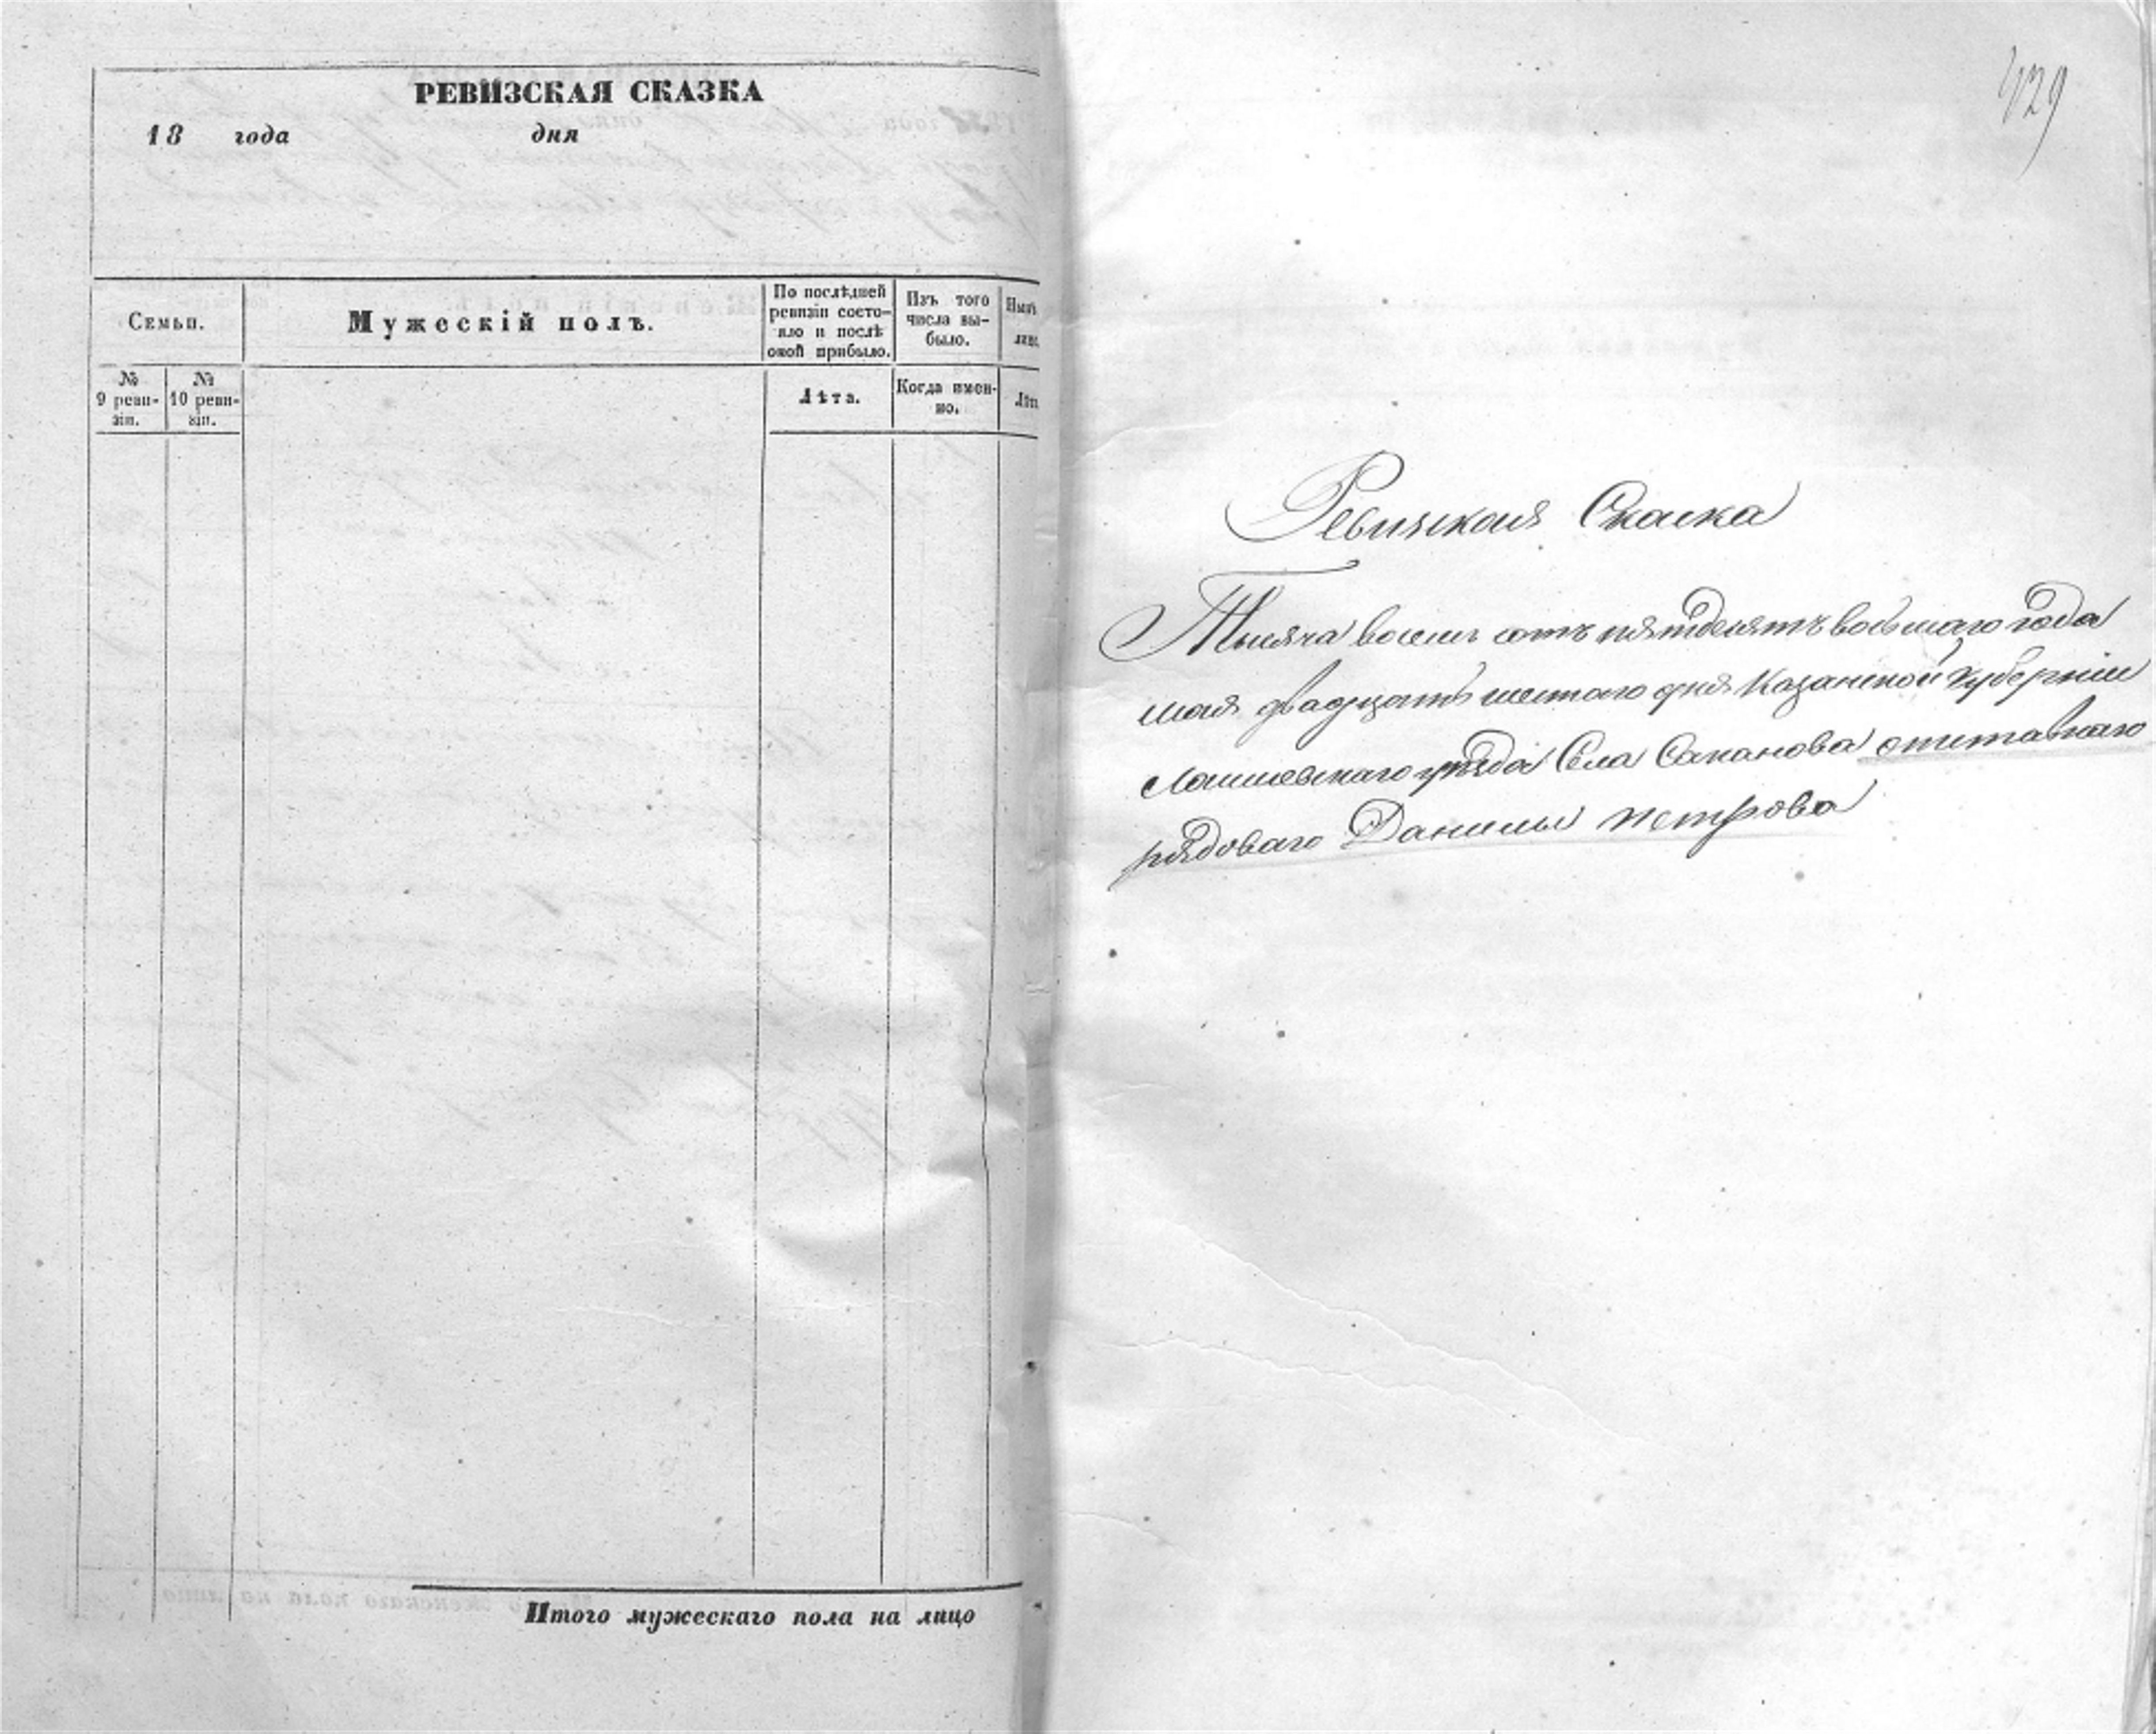 РЕВИЗСКАЯ СКАЗКА
18 года дня
Семьи.
Мужескій полъ.
По послѣдней
ревизіи состо-
яло и послѣ
оной прибыло.
Изъ того
числа вы-
было.
№
9 реви-
зіи.
№
10 реви-
зіи.
Лѣта.
Когда имен-
но.
Итого мужескаго пола на лицо
429
Ревизская Сказка
Тысяча восемь сотъ пятдесятъ восьмаго года
мая двадцать шестаго дня Казанской губерніи
Лаишевскаго уѣзда Села Саканова отставнаго
рядоваго Данилы петрова